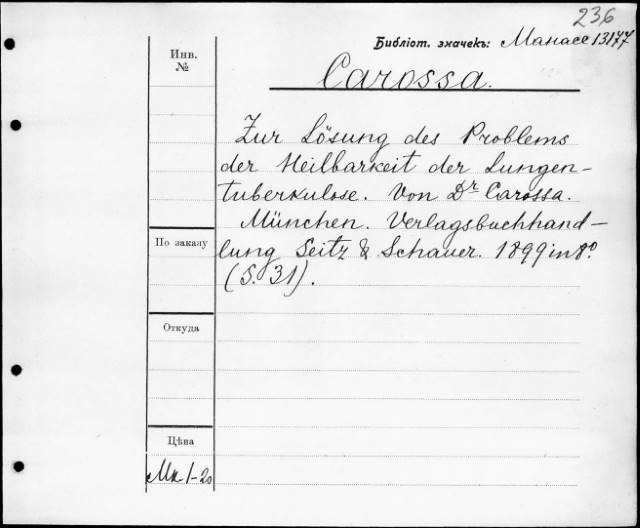 236
Библіот. значекъ: Манасе 13177
Инв.
№
Carossa.
Zur Lösung des Problems
der Heilbarkeit der Lungen-
tuberkulose. Von Dr Carossa.
München. Verlagsbuchhand-
По заказу
lung Seitz & Schauer. 1899 in 8º.
(S. 31).
Откуда
Цѣна
Мк 1-20